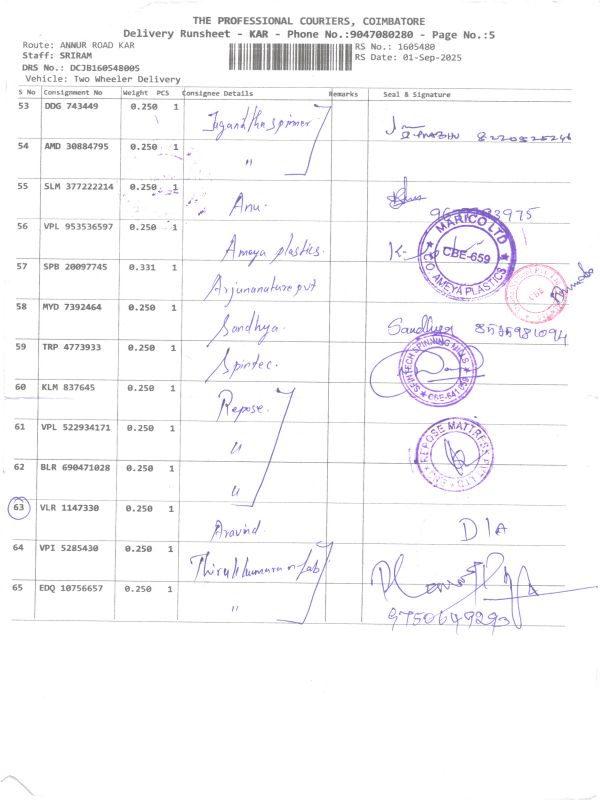 THE PROFESSIONAL COURIERS, COIMBATORE
Delivery Runsheet - KAR - Phone No.:9047080280 - Page No.:5
Route: ANNUR ROAD KAR
RS No.: 1605480
Staff: SRIRAM
RS Date: 01-Sep-2025
DRS No.: DCJB160548005
Vehicle: Two Wheeler Delivery
S No Consignment No Weight PCS Consignee Details Remarks Seal & Signature
53 DDG 743449 0.250 1 Jagandtha spinner
54 AMD 30884795 0.250 1 "
55 SLM 377222214 0.250 1 Anu.
56 VPL 953536597 0.250 1 Amaya plastics. MARICO LTD CBE-659 C/O AMEYA PLASTICS
57 SPB 20097745 0.331 1 Arjunanature pvt
58 MYD 7392464 0.250 1 Sandhya. Sandhya
59 TRP 4773933 0.250 1 Spintec. SPINTECH SPINNING MILLS
60 KLM 837645 0.250 1 Repose.
61 VPL 522934171 0.250 1 " REPOSE MATTRESS PVT LTD
62 BLR 690471028 0.250 1 "
63 VLR 1147330 0.250 1 Aravind. D/A
64 VPI 5285430 0.250 1
65 EDQ 10756657 0.250 1 " 9750649293